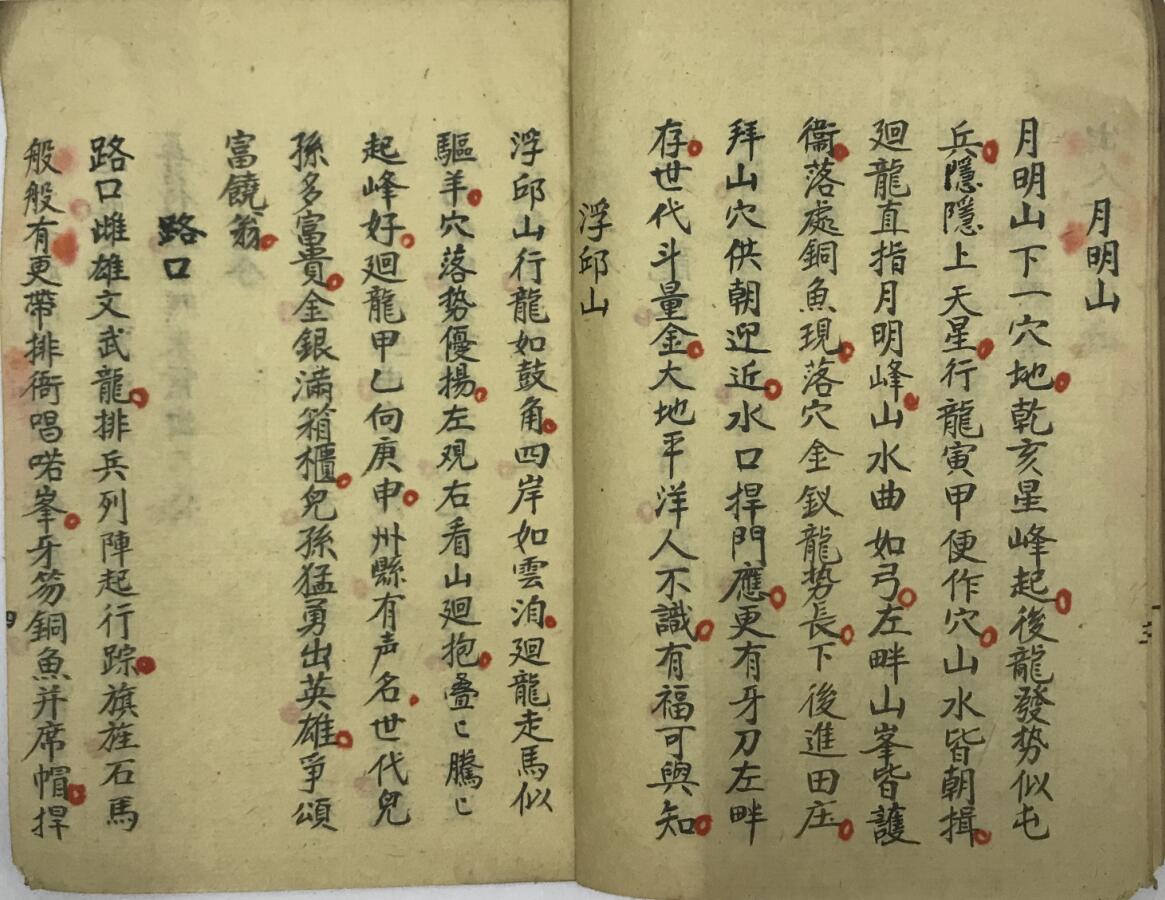 月明山
月明山下一穴地乾亥星峰起後龍發势似屯
兵隱隱上天星行龍寅甲便作穴山水皆朝揖
廻龍直指月明峰山水曲如弓左畔山峯皆護
衞落處銅魚現落穴金釵龍势長下後進田庄
拜山穴供朝迎近水口捍門應更有牙刀左畔
存世代斗量金大地平洋人不識有福可與知
浮邱山
浮邱山行龍如鼓角四岸如雲泊廻龍走馬似
驅羊穴落势優揚左观右看山廻抱叠〻騰〻
起峰好廻龍甲乙向庚申州縣有声名世代兒
孫多富貴金銀滿箱櫃兒孫猛勇出英雄爭頌
富饒翁
路口
路口雌雄文武龍排兵列陣起行踪旗旌石馬
般般有更帶排衙唱喏峯牙笏銅魚并席帽捍
三
四